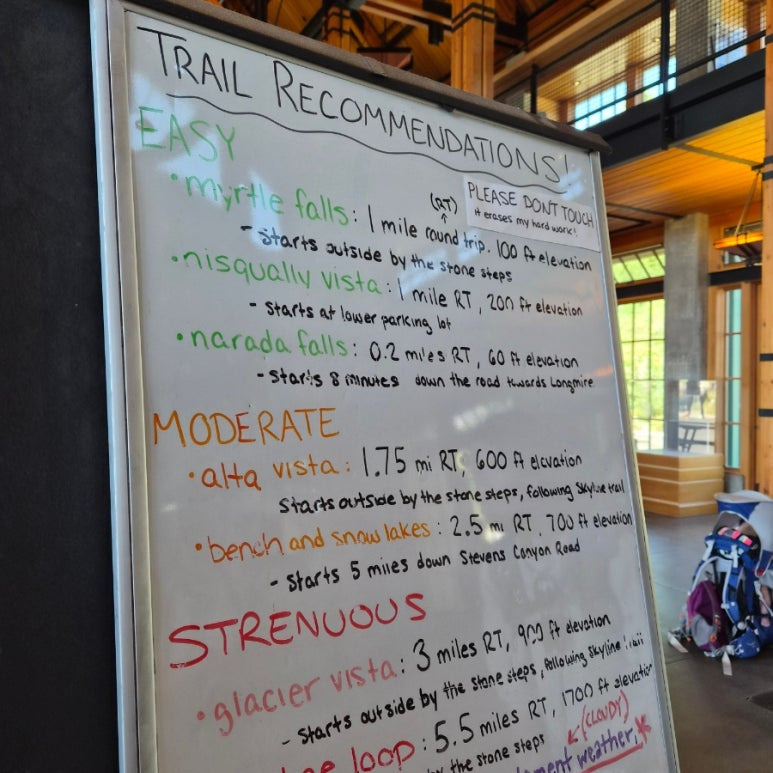 TRAIL RECOMMENDATIONS!
PLEASE DON'T TOUCH
it erases my hard work!
EASY
• myrtle falls: 1 mile round trip. 100 ft elevation
(RT)
- starts outside by the stone steps
• nisqually vista: 1 mile RT, 200 ft elevation
- starts at lower parking lot
• narada falls: 0.2 miles RT, 60 ft elevation
- starts 8 minutes down the road towards Longmire
MODERATE
• alta vista: 1.75 mi RT, 600 ft elevation
starts outside by the stone steps, following skyline trail
• bench and snow lakes: 2.5 mi RT, 700 ft elevation
- starts 5 miles down Stevens Canyon Road
STRENUOUS
• glacier vista: 3 miles RT, 900 ft elevation
- starts outside by the stone steps, following skyline trail
loop: 5.5 miles RT, 1700 ft elevation
by the stone steps
(CLOUDY)
weather,*